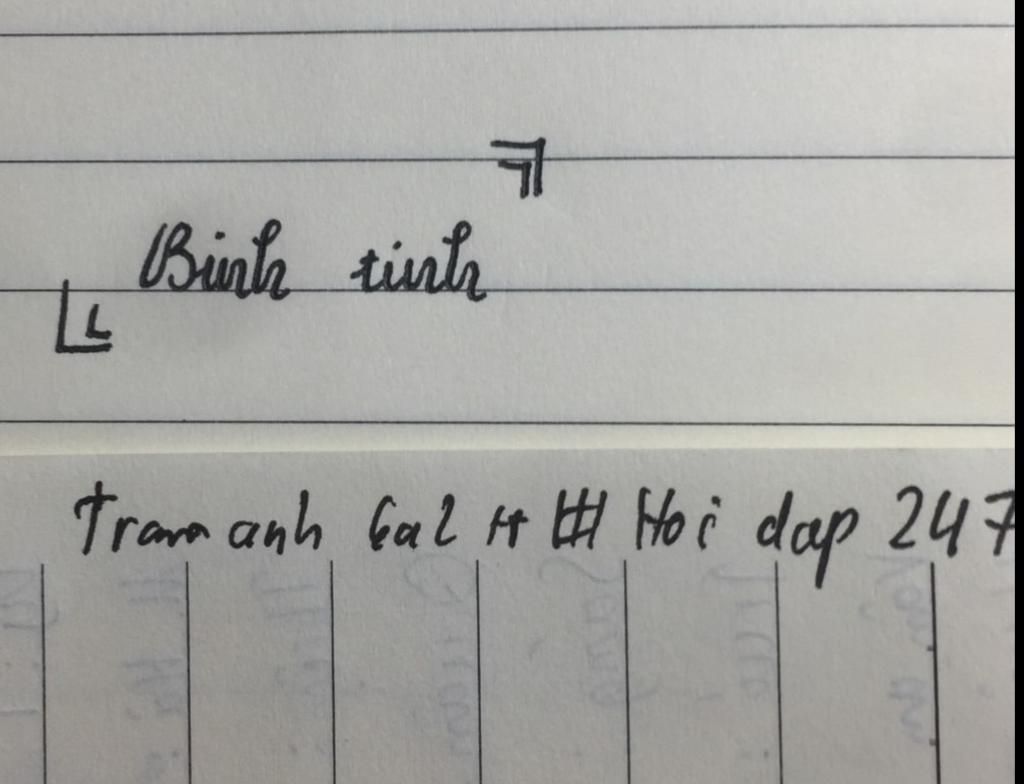 『Binh tinh』
Tram anh 6a2 # Hoi dap 247